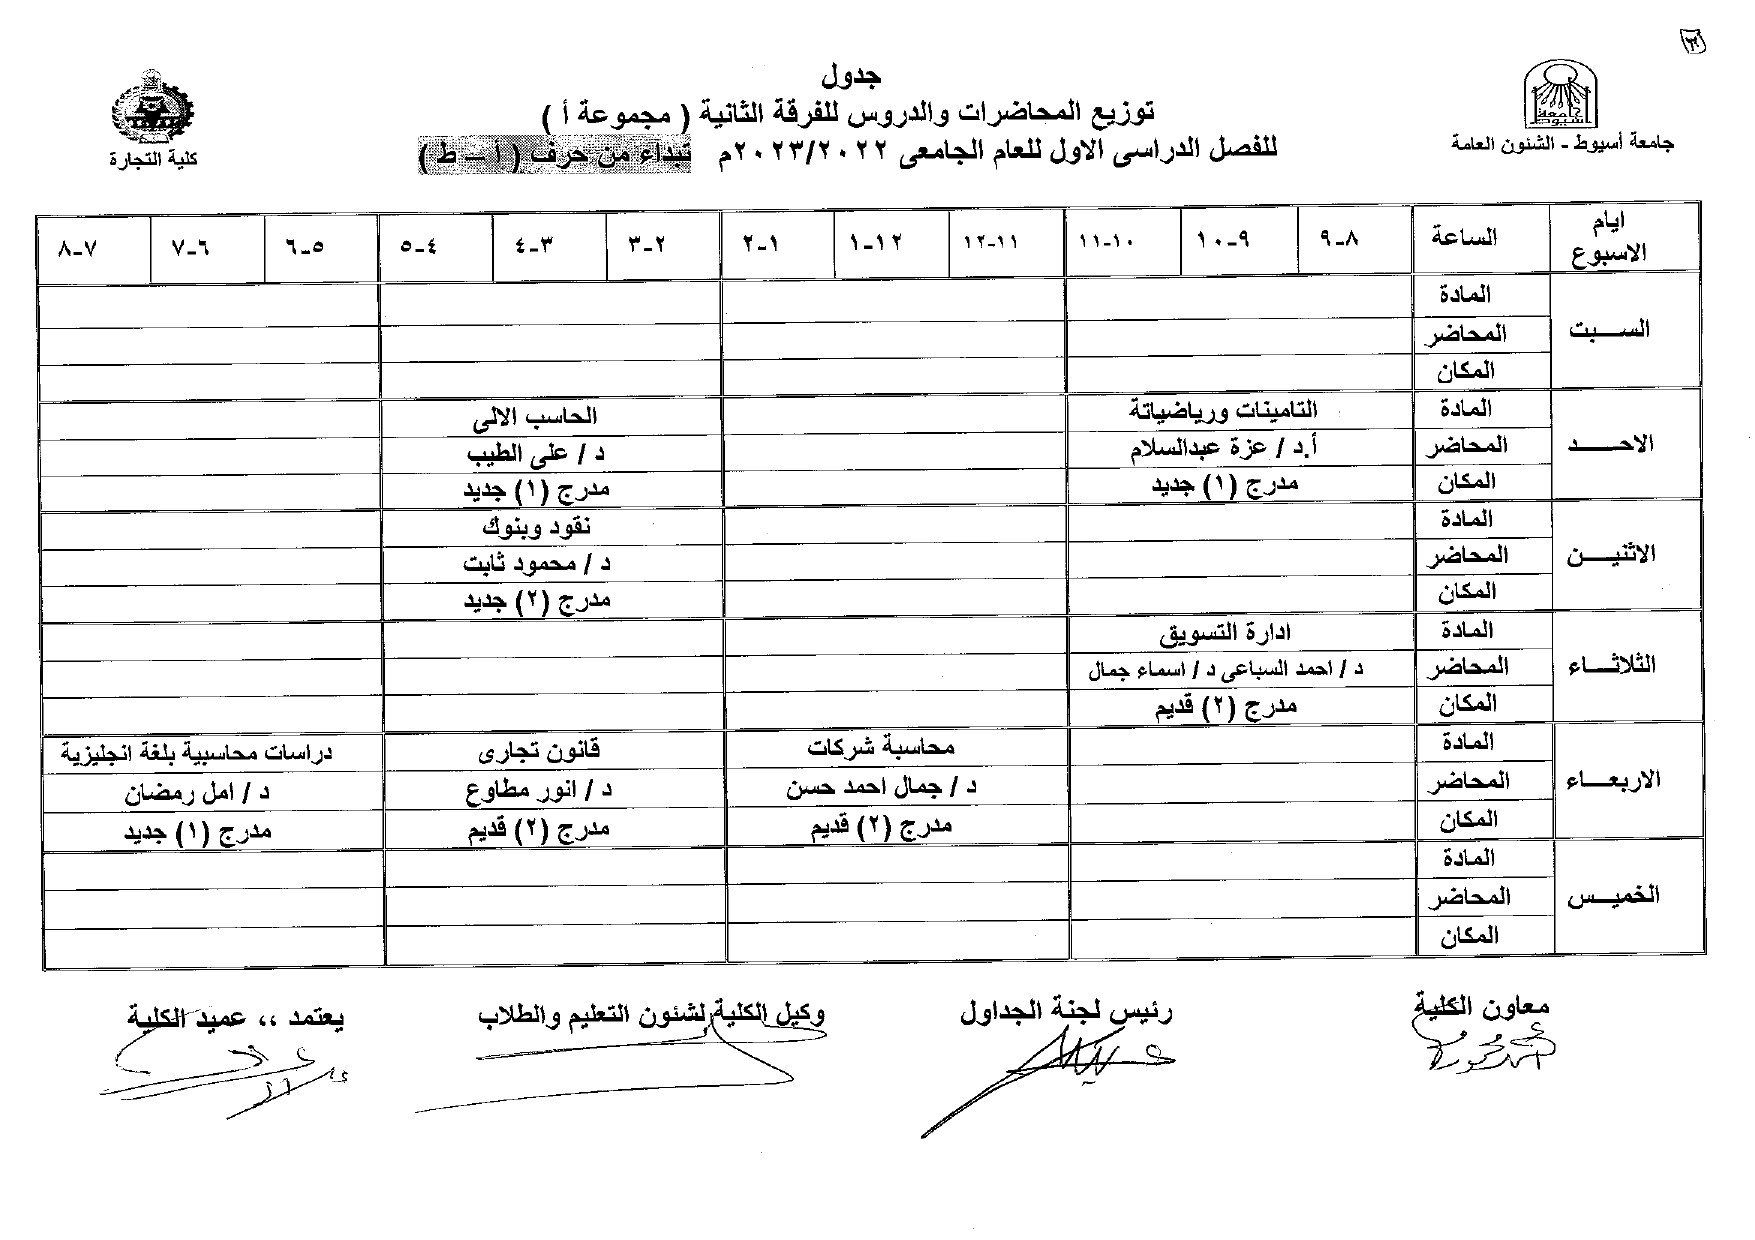 جدول
توزيع المحاضرات والدروس للفرقة الثانية ( مجموعة أ )
للفصل الدراسى الاول للعام الجامعى ٢٠٢٣/٢٠٢٢م تبداء من حرف ( أ – ط )
جامعة أسيوط - الشئون العامة
كلية التجارة
ايام الاسبوع الساعة ٨-٩ ٩-١٠ ١٠-١١ ١١-١٢ ١٢-١ ١-٢ ٢-٣ ٣-٤ ٤-٥ ٥-٦ ٦-٧ ٧-٨
السبت المادة
المحاضر
المكان
الاحد المادة التامينات ورياضياتة الحاسب الالى
المحاضر أ.د / عزة عبدالسلام د / على الطيب
المكان مدرج (١) جديد مدرج (١) جديد
الاثنين المادة نقود وبنوك
المحاضر د / محمود ثابت
المكان مدرج (٢) جديد
الثلاثاء المادة ادارة التسويق
المحاضر د / احمد السباعى د / اسماء جمال
المكان مدرج (٢) قديم
الاربعاء المادة محاسبة شركات قانون تجارى دراسات محاسبية بلغة انجليزية
المحاضر د / جمال احمد حسن د / انور مطاوع د / امل رمضان
المكان مدرج (٢) قديم مدرج (٢) قديم مدرج (١) جديد
الخميس المادة
المحاضر
المكان
معاون الكلية رئيس لجنة الجداول وكيل الكلية لشئون التعليم والطلاب يعتمد ،، عميد الكلية